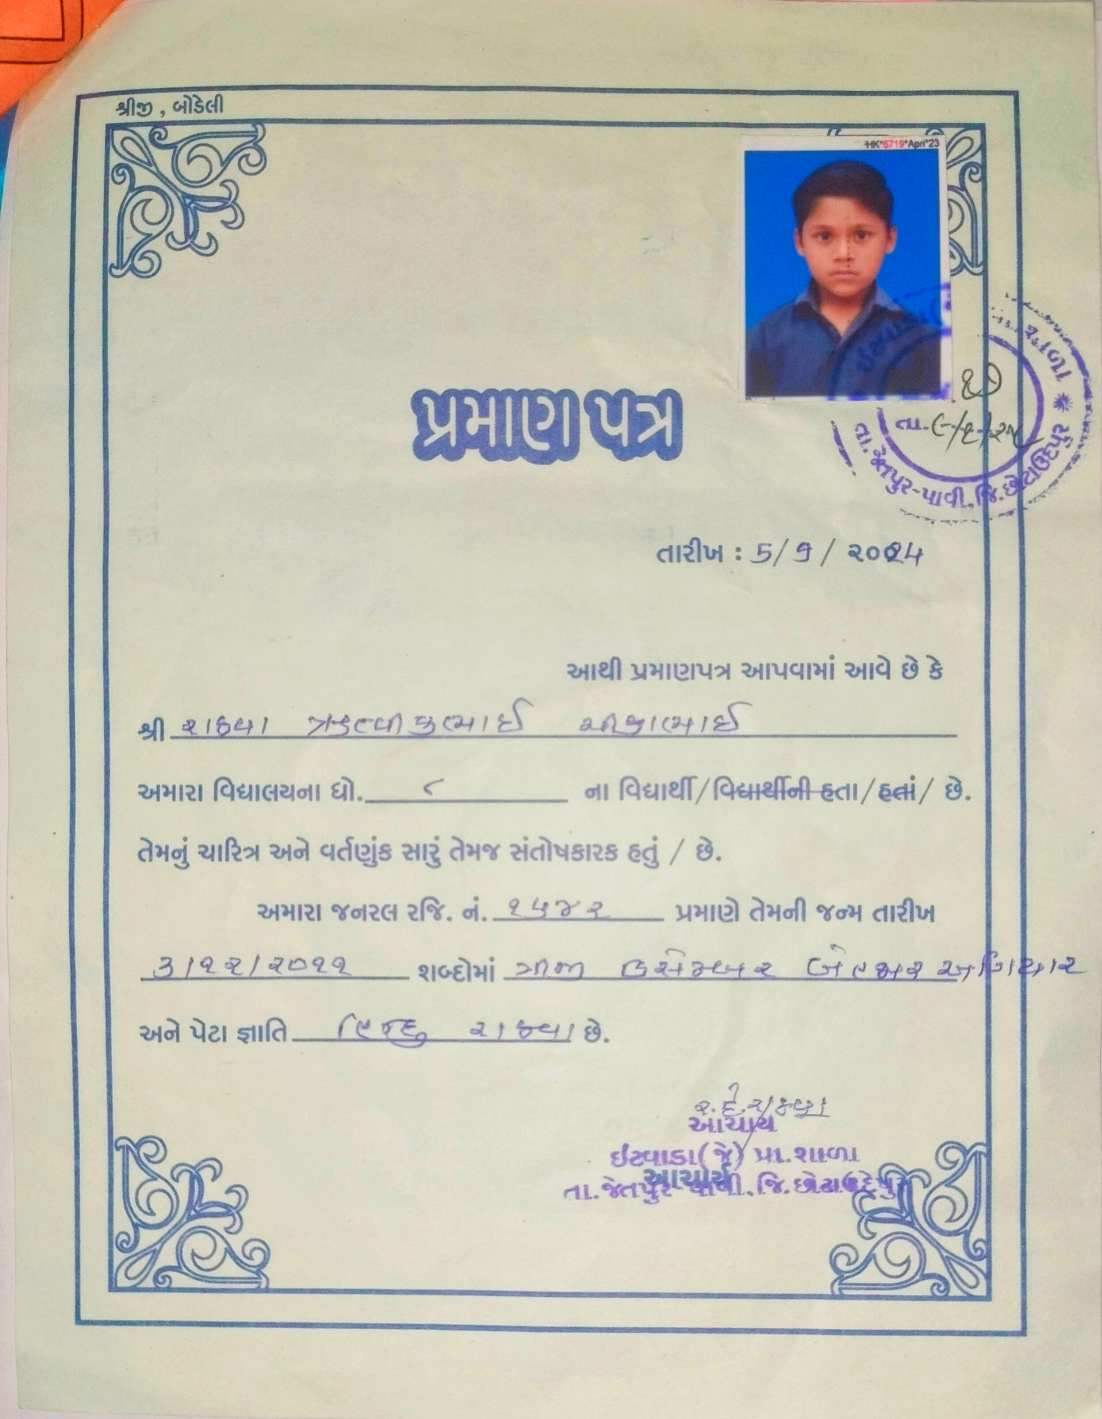 શ્રીજી , બોડેલી
HK*5719*April*23
પ્રમાણ પત્ર
તા. ૯/૬/૨૫
તા.જેતપુર-પાવી, જિ.છોટાઉદેપુર
તારીખ : 5/9/ ૨૦૨4
આથી પ્રમાણપત્ર આપવામાં આવે છે કે
શ્રી રાઠવા
અમારા વિદ્યાલયના ધો. ૮ ના વિદ્યાર્થી/વિદ્યાર્થીની હતા/હતાં/ છે.
તેમનું ચારિત્ર અને વર્તણુંક સારું તેમજ સંતોષકારક હતું / છે.
અમારા જનરલ રજિ. નં. ૧૫૪૨ પ્રમાણે તેમની જન્મ તારીખ
3/૧૨/૨૦૧૧ શબ્દોમાં ત્રીજી ડીસેમ્બર બે હજાર અગિયાર
અને પેટા જ્ઞાતિ હિન્દુ રાઠવા છે.
ર.દે.રાઠવા
આચાર્ય
ઈટવાડા(જે) પ્રા.શાળા
આચાર્ય
તા.જેતપુર-પાવી, જિ.છોટાઉદેપુર